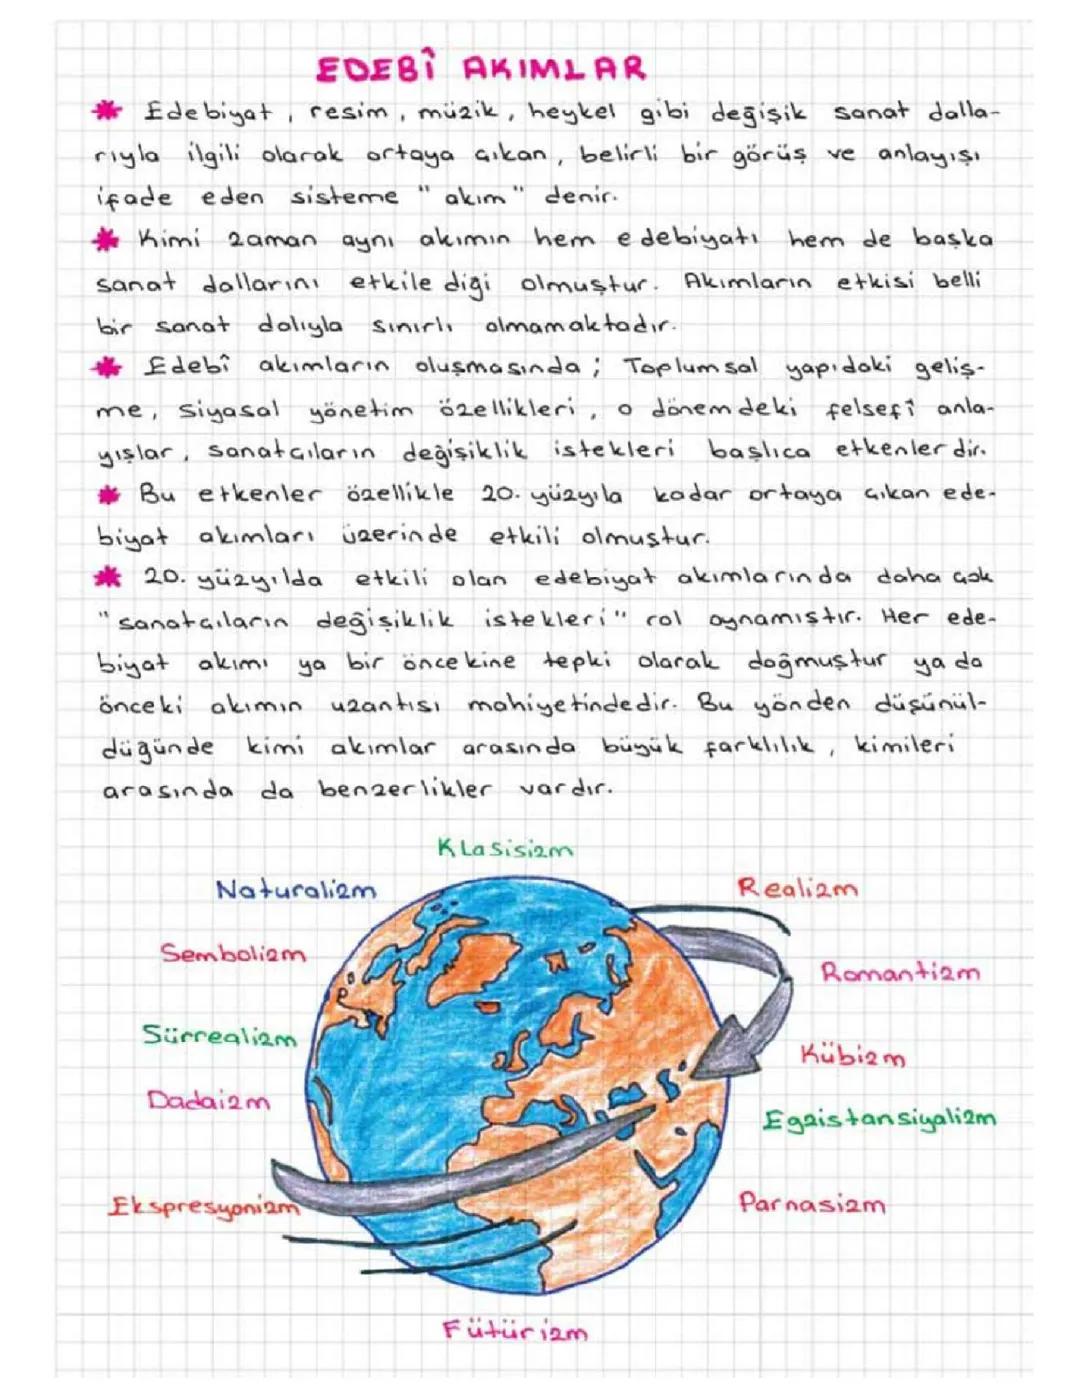 EDEBÎ AKIMLAR
* Edebiyat, resim, müzik, heykel gibi değişik sanat dalla-
rıyla ilgili olarak ortaya çıkan, belirli bir görüş ve anlayışı
ifade eden sisteme "akım" denir.
* Kimi zaman aynı akımın hem edebiyatı hem de başka
sanat dallarını etkilediği olmuştur. Akımların etkisi belli
bir sanat dalıyla sınırlı olmamaktadır.
* Edebî akımların oluşmasında; Toplumsal yapıdaki geliş-
me, siyasal yönetim özellikleri, o dönemdeki felsefî anla-
yışlar, sanatçıların değişiklik istekleri başlıca etkenlerdir.
* Bu etkenler özellikle 20. yüzyıla kadar ortaya çıkan ede-
biyat akımları üzerinde etkili olmuştur.
* 20. yüzyılda etkili olan edebiyat akımlarında daha çok
"sanatçıların değişiklik istekleri" rol oynamıştır. Her ede-
biyat akımı ya bir öncekine tepki olarak doğmuştur ya da
önceki akımın uzantısı mahiyetindedir. Bu yönden düşünül-
düğünde kimi akımlar arasında büyük farklılık, kimileri
arasında da benzerlikler vardır.
Klasisizm
Naturalizm
Realizm
Sembolizm
Romantizm
Sürrealizm
Kübizm
Dadaizm
Egzistansiyalizm
Ekspresyonizm
Parnasizm
Fütürizm